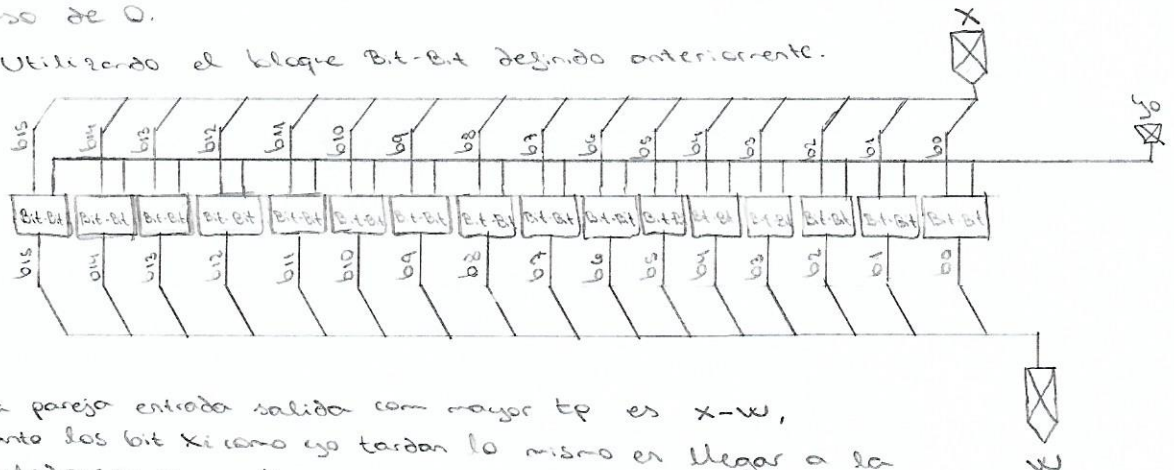 so de 0.
Utilizando el bloque Bit-Bit definido anteriormente.
X
y0
b15 b14 b13 b12 b11 b10 b9 b8 b7 b6 b5 b4 b3 b2 b1 b0
Bit-Bit Bit-Bit Bit-Bit Bit-Bit Bit-Bit Bit-Bit Bit-Bit Bit-Bit Bit-Bit Bit-Bit Bit-Bit Bit-Bit Bit-Bit Bit-Bit Bit-Bit Bit-Bit
b15 b14 b13 b12 b11 b10 b9 b8 b7 b6 b5 b4 b3 b2 b1 b0
pareja entrada salida com mayor tp es X-W,
los bit Xi como y0 tardan lo mismo en llegar a la
W